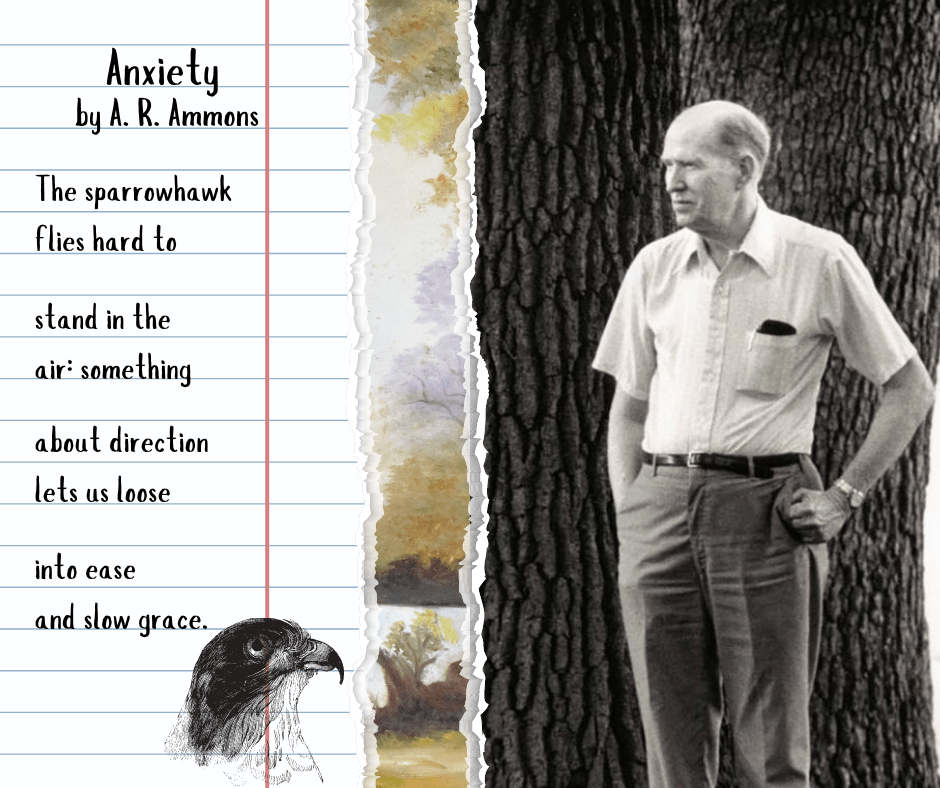 Anxiety
by A. R. Ammons
The sparrowhawk
flies hard to
stand in the
air: something
about direction
lets us loose
into ease
and slow grace.